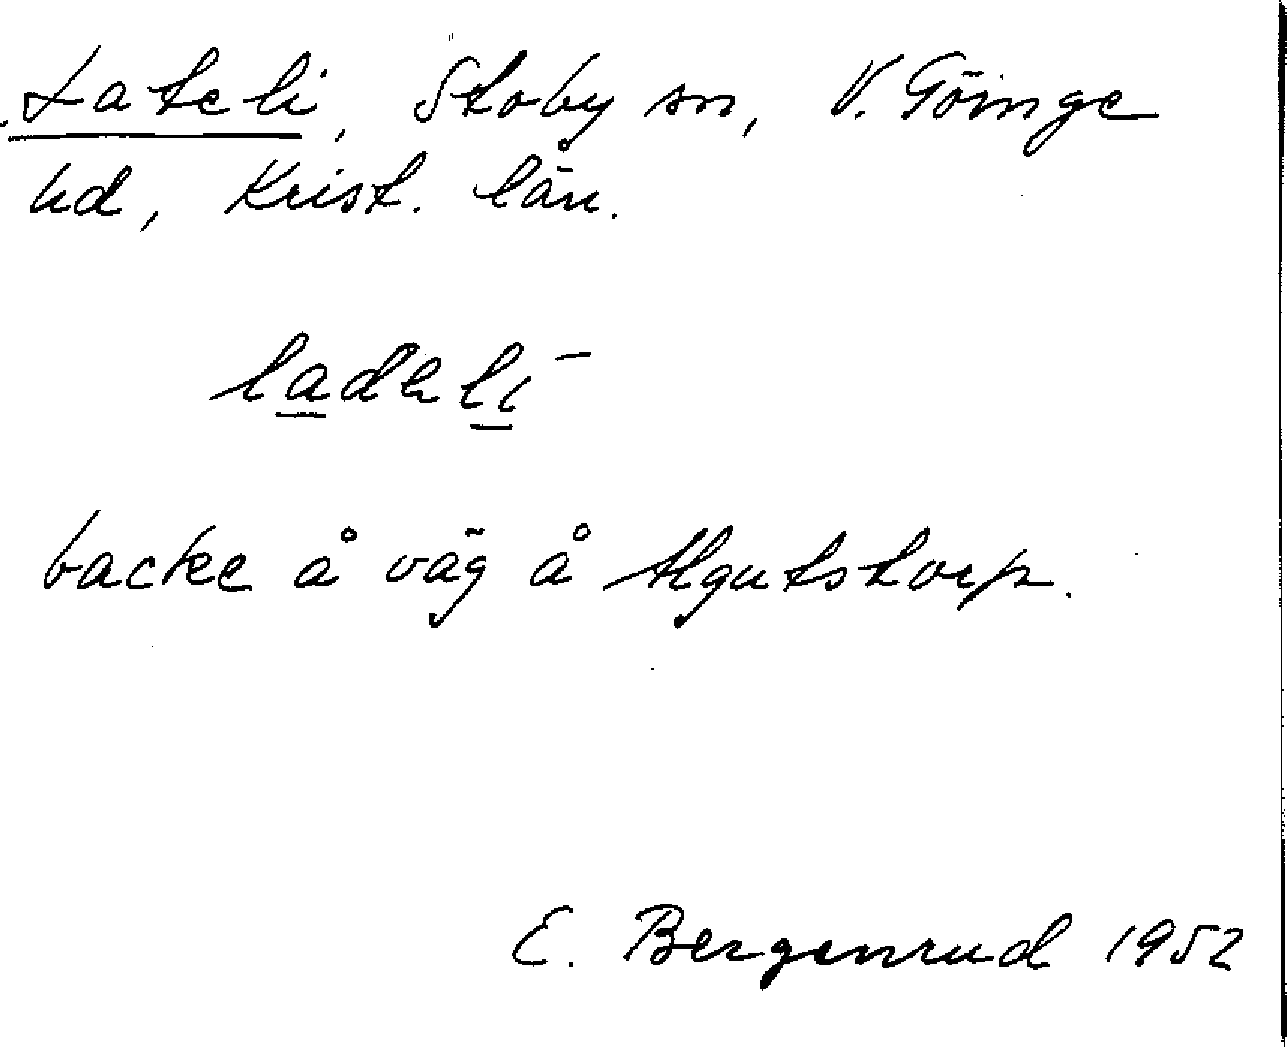 Lateli, Stoby sn, V. Göinge
hd, Krist. län.
ladeli-
backe å väg å Algutstorp.
E. Bergenrud 1952